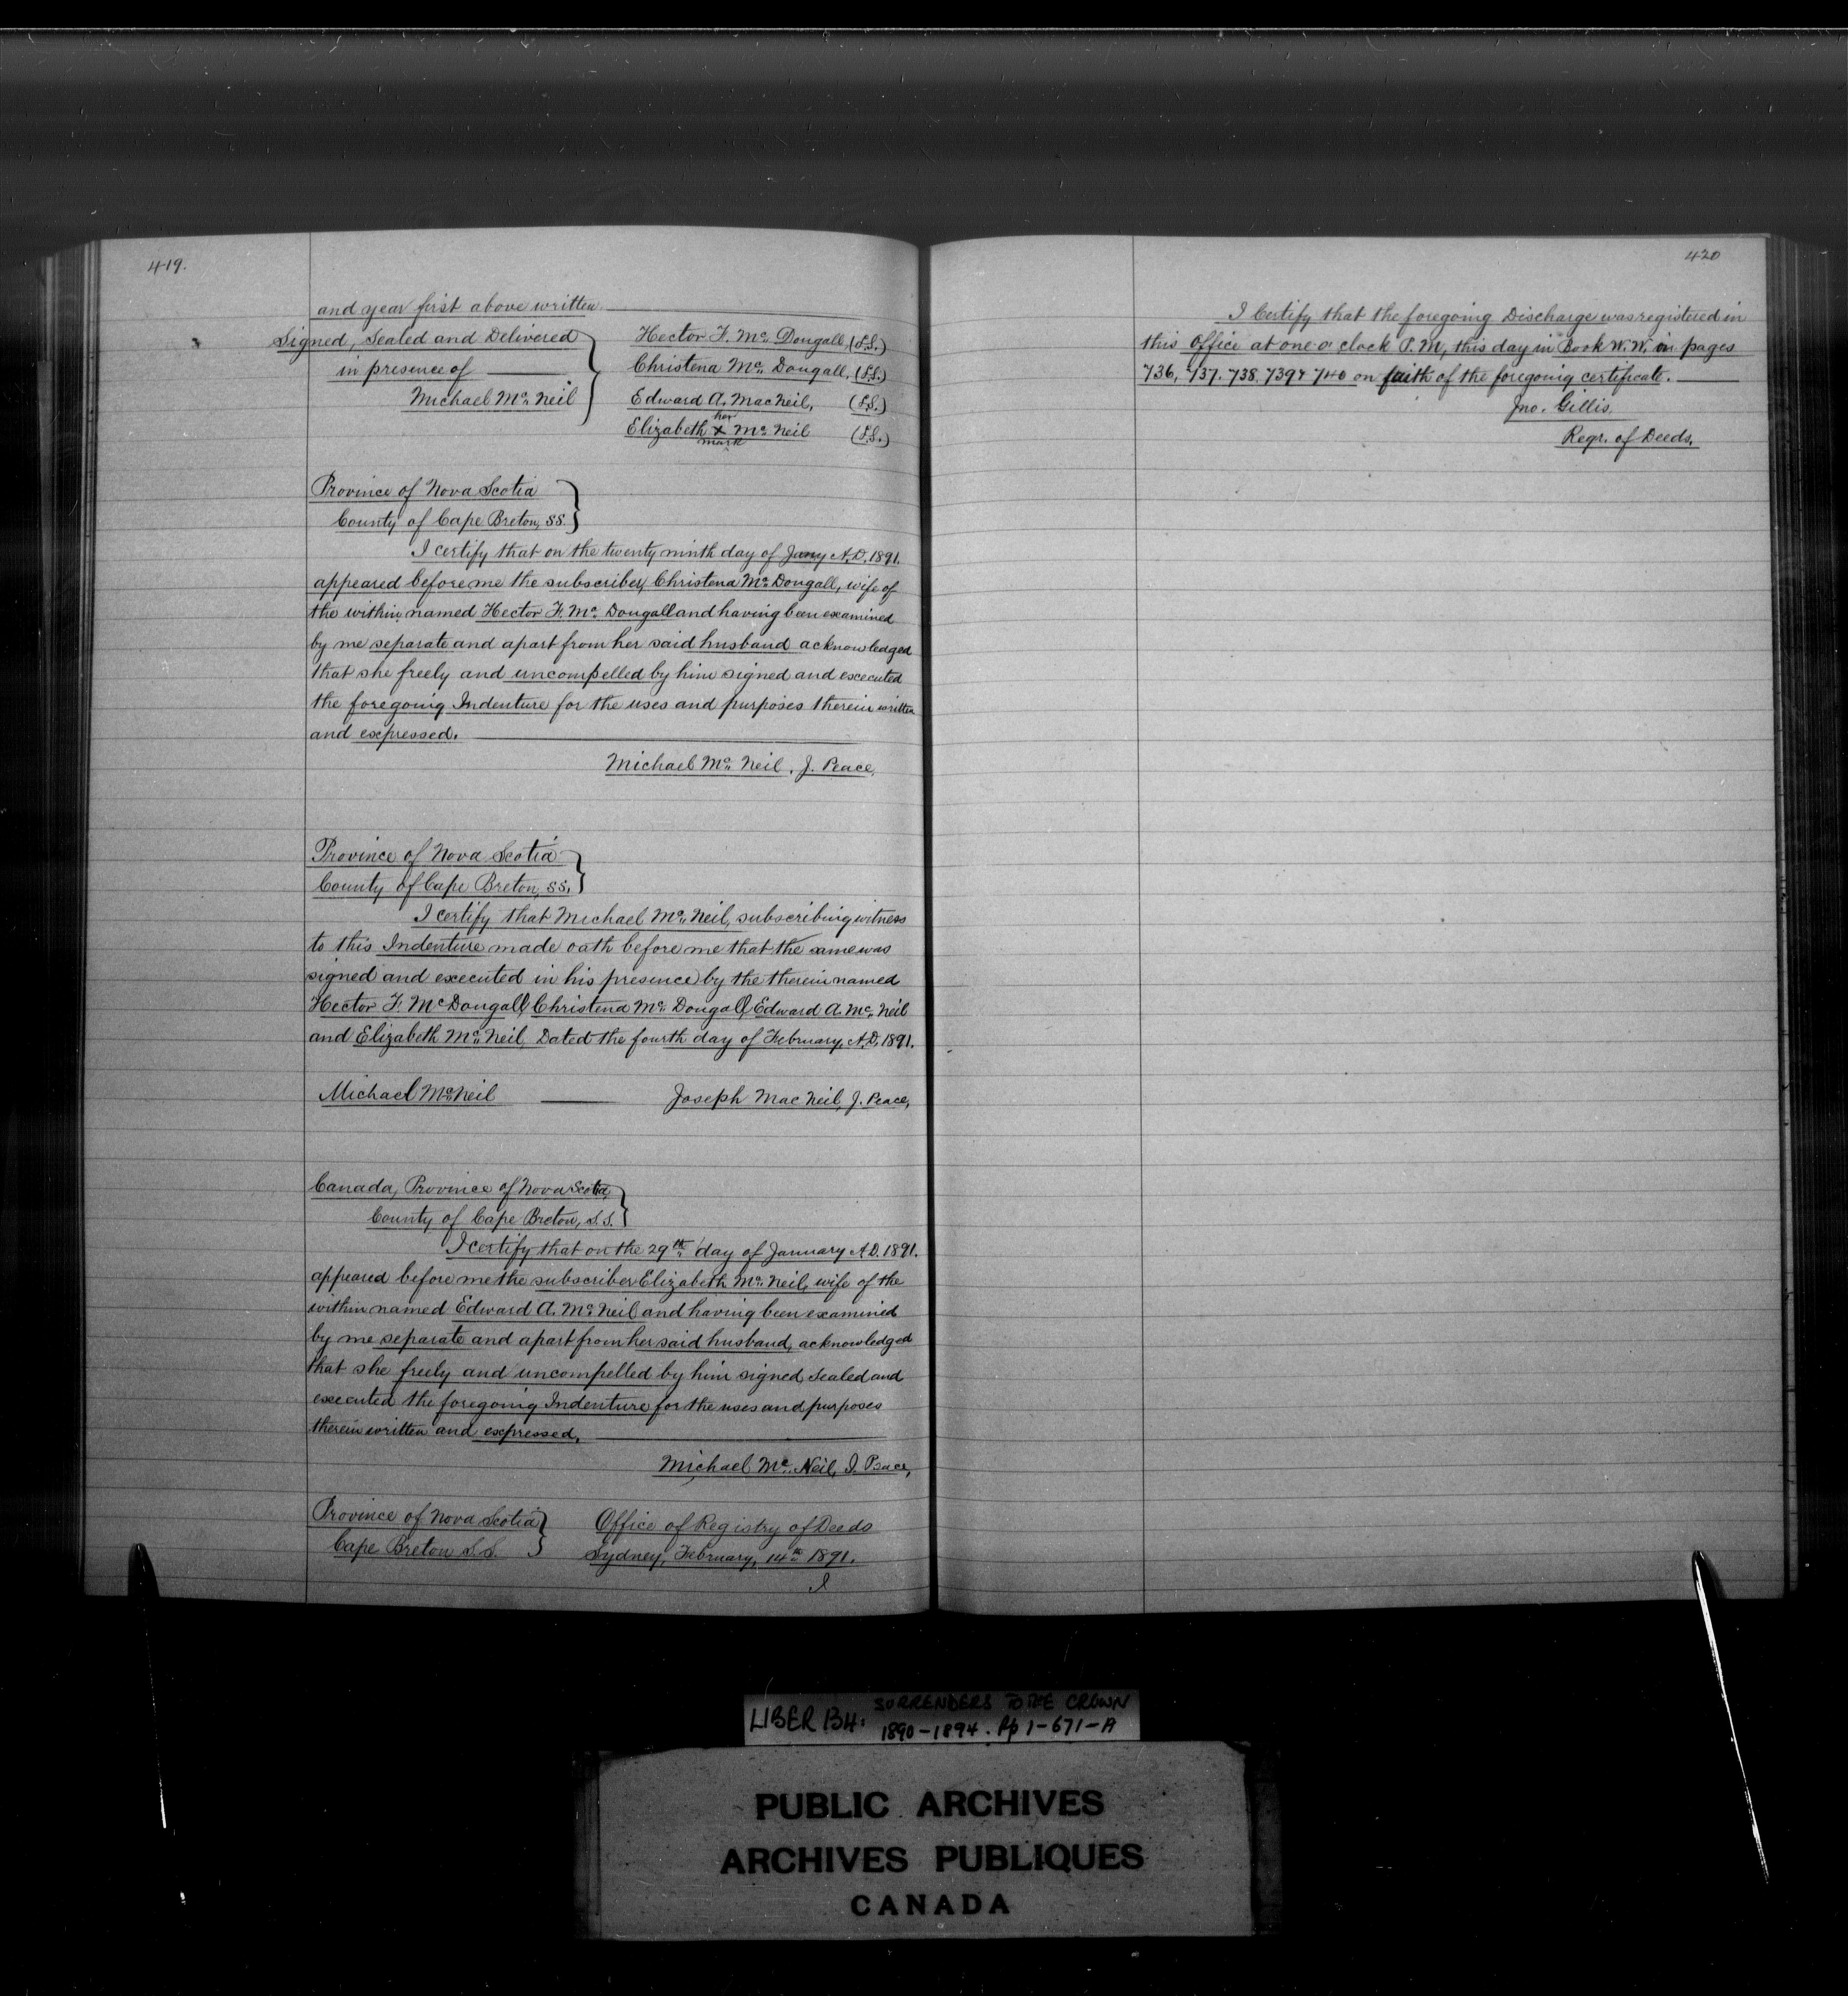 419.
and year first above written
Signed, Sealed and Delivered
in presence of
Michael Mc Neil
Hector F. Mc Dougall, (L.S.)
Christena Mc Dougall, (L.S.)
Edward A. MacNeil, (L.S.)
her
Elizabeth x Mc Neil (L.S.)
mark
Province of Nova Scotia
County of Cape Breton, SS.
I certify that on the twenty ninth day of Jany A.D. 1891.
appeared before me the subscriber, Christena Mc Dougall, wife of
the within named Hector F. Mc Dougall and having been examined
by me separate and apart from her said husband acknowledged
that she freely and uncompelled by him signed and executed
the foregoing Indenture for the uses and purposes therein written
and expressed.
Michael Mc Neil, J. Peace,
Province of Nova Scotia
County of Cape Breton, SS.
I certify that Michael Mc Neil, subscribing witness
to this Indenture made oath before me that the same was
signed and executed in his presence by the therein named
Hector F. McDougall, Christena Mc Dougall, Edward A. Mc Neil
and Elizabeth Mc Neil, Dated the fourth day of February, A.D. 1891.
Michael McNeil Joseph MacNeil, J. Peace,
Canada, Province of Nova Scotia,
County of Cape Breton, S.S.
I certify that on the 29th day of January A.D. 1891.
appeared before me the subscriber Elizabeth Mc Neil, wife of the
within named Edward A. Mc Neil and having been examined
by me separate and apart from her said husband, acknowledged
that she freely and uncompelled by him signed, sealed and
executed the foregoing Indenture for the uses and purposes
therein written and expressed.
Michael Mc Neil, J. Peace,
Province of Nova Scotia
Cape Breton S.S.
Office of Registry of Deeds
Sydney, February, 14th 1891.
I
420
I Certify that the foregoing Discharge was registered in
this office at one o'clock P.M, this day in Book W.W. in pages
736, 737. 738. 739 & 740 on faith of the foregoing certificate.
Jno. Gillis.
Regr. of Deeds.
LIBER 134: SURRENDERS TO THE CROWN
1890-1894. Pp 1-671-A
PUBLIC ARCHIVES
ARCHIVES PUBLIQUES
CANADA